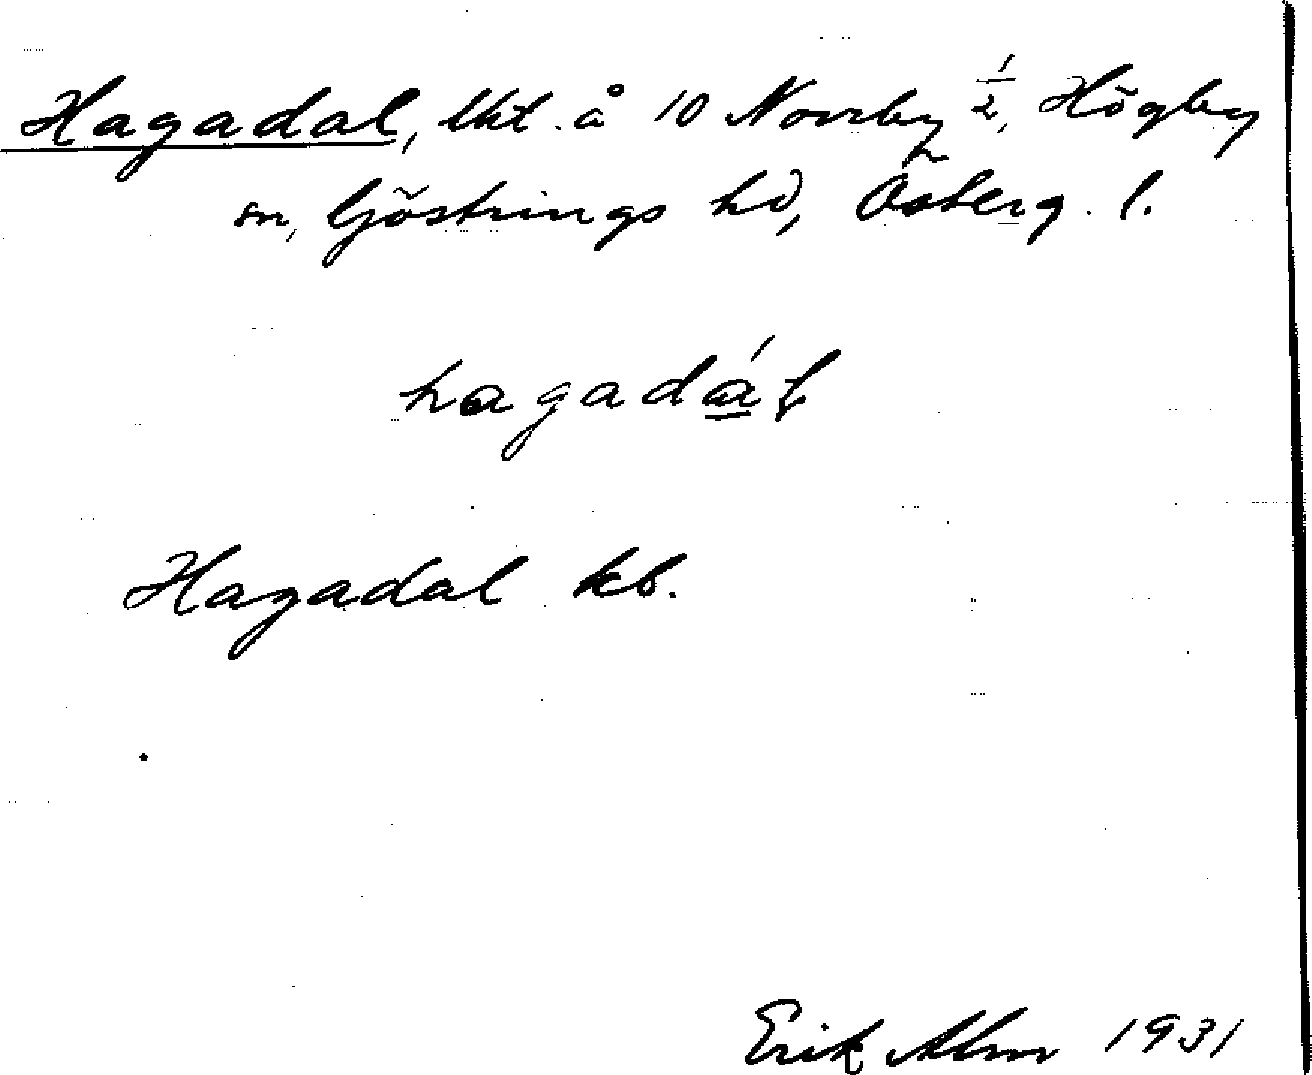 Hagadal, lht. å 10 Norrby 1/2, Högby
sn, Göstrings hd, Österg. l.
hagadál
Hagadal kb.
Erik Alm 1931